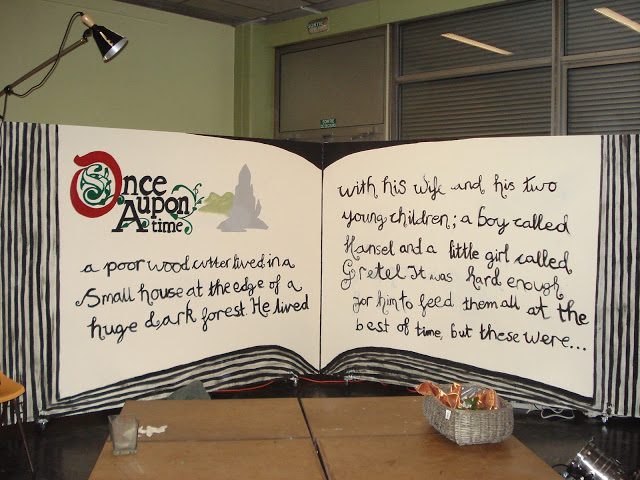 Once
Aupon
time
a poor wood cutter lived in a
small house at the edge of a
huge dark forest. He lived
with his wife and his two
young children; a boy called
Hansel and a little girl called
Gretel. It was hard enough
for him to feed them all at the
best of time, but these were...